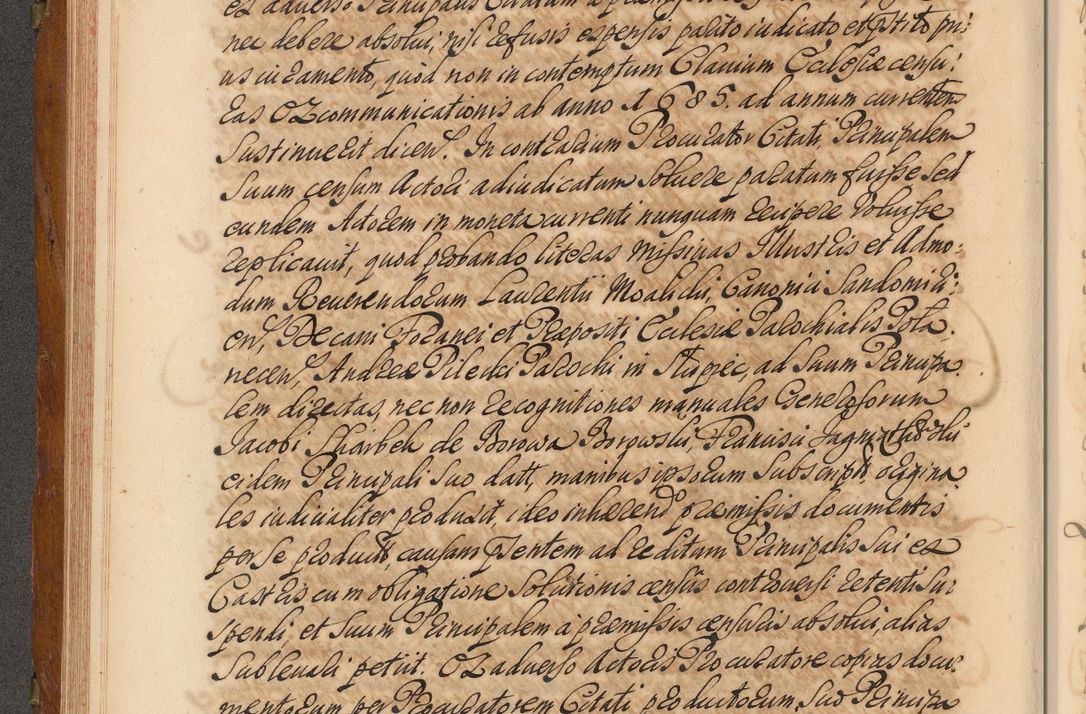 ex adverso Principalis Citatum a præmissis
nec debere absolui, nisi refusis expensis parito iudicato et præstito pri:
us iuramento, quod non in contemptum Clauium Ecclesiæ censu:
ras Excommunicationis ab anno 1685. ad annum currentem
Sustinuerit dicen. In contrarium Procurator Citati, Principalem
Suum censum Actori adiudicatum Soluere paratum fuisse Sed
eundem Actorem in moneta currenti nunquam recipere Voluisse
replicauit, quod probando literas Missiuas Illustris et Admo:
dum Reuerendorum Laurentii Moalicki, Canonici Sandomiri:
en, Decani Foranei et Præpositi Ecclesiæ Parochialis Pota:
necen, Andreæ Pilecki Parochi in Stupiec, ad Suum Principa:
lem directas, nec non recognitiones manuales Generosorum
Jacobi Skarbek de Borowa Borowski, Francisci
eidem Principali Suo datt, manibus ipsorum Subscript, origina:
les iudicialiter produxit, ideo inhærend præmissis documentis
per Se product, causam Pntem ad reditum Principalis Sui ex
Castris cum obligatione Solutionis censûs controuersi retenti Su:
spendi, et Suum Principalem à præmissis censuris absolui, alias
Subleuari petiit. Ex aduerso Actoris Procuratore copias docu:
mentorum per Procuratorem Citati productorum, Suo Principa